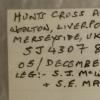 HUNTS CROSS A
WOOLTON, LIVERPO
MERSEYSIDE, UK
SJ 4307 8
05/DECEMBER
LEG:- S.J. McW
+ S.E. MA